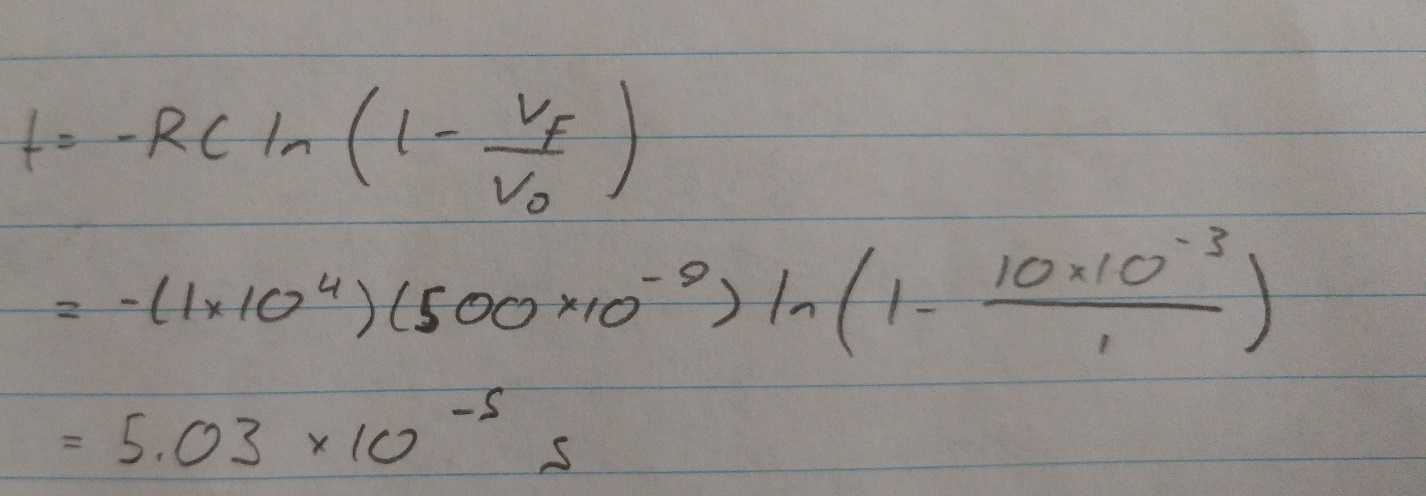 t = -RC ln(1 - V_F/V_0)
= -(1×10^4)(500×10^-9) ln(1 - 10×10^-3/1)
= 5.03 × 10^-5 s